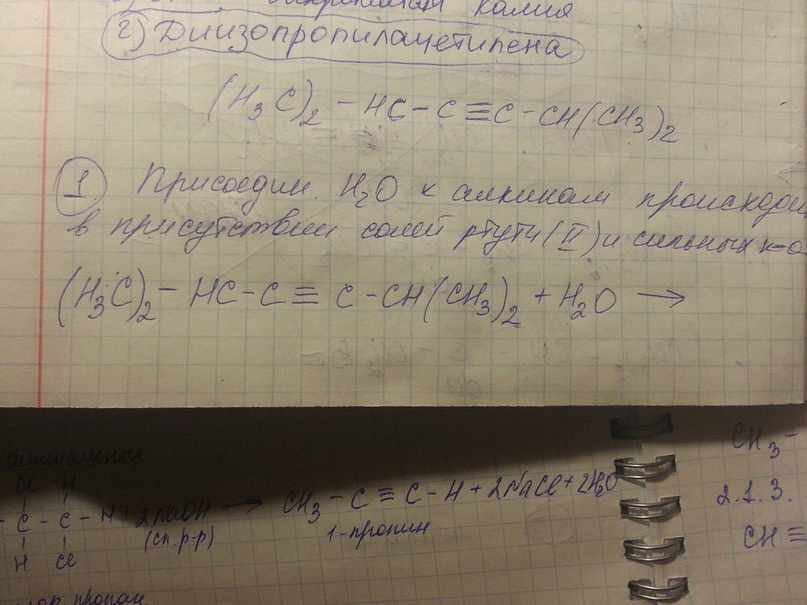 калия
2) Диизопропилацетилена
(H3C)2 – HC – C ≡ C – CH(CH3)2
1. Присоедин. H2O к алкинам происходи
в присутствии солей ртути (II) и сильных к-о
(H3C)2 – HC – C ≡ C – CH(CH3)2 + H2O →
CH3 –
Cl H
– C – C – H + 2NaOH → CH3 – C ≡ C – H + 2NaCl + 2H2O
2.1.3.
(сп. р-р) 1-пропин
H Cl
CH ≡
пропан